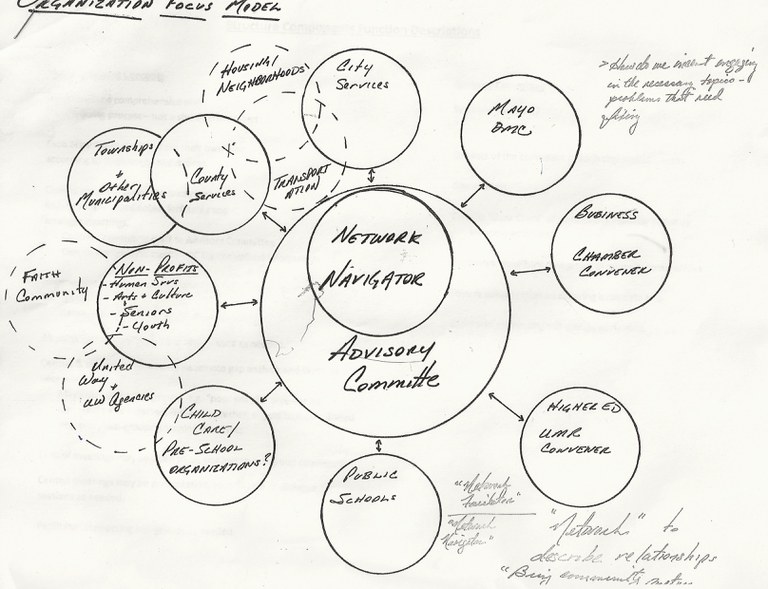 ORGANIZATION FOCUS MODEL
HOUSING/
NEIGHBORHOODS
CITY
SERVICES
> How do we insert engaging
in the necessary topics -
problems that need
fixing
MAYO
DMC
TOWNSHIPS
+
OTHER
MUNICIPALITIES
COUNTY
SERVICES
TRANSPORT
ATION
BUSINESS
CHAMBER
CONVENER
NETWORK
NAVIGATOR
FAITH
COMMUNITY
NON-PROFITS
- HUMAN SRVS
- ARTS + CULTURE
- SENIORS
- YOUTH
ADVISORY
COMMITTE
UNITED
WAY
+
UW AGENCIES
CHILD
CARE/
PRE-SCHOOL
ORGANIZATIONS?
HIGHER ED
UMR
CONVENER
PUBLIC
SCHOOLS
"Network
Facilitator"
"Network
Navigator"
"Network" to
describe relationships
"Being community